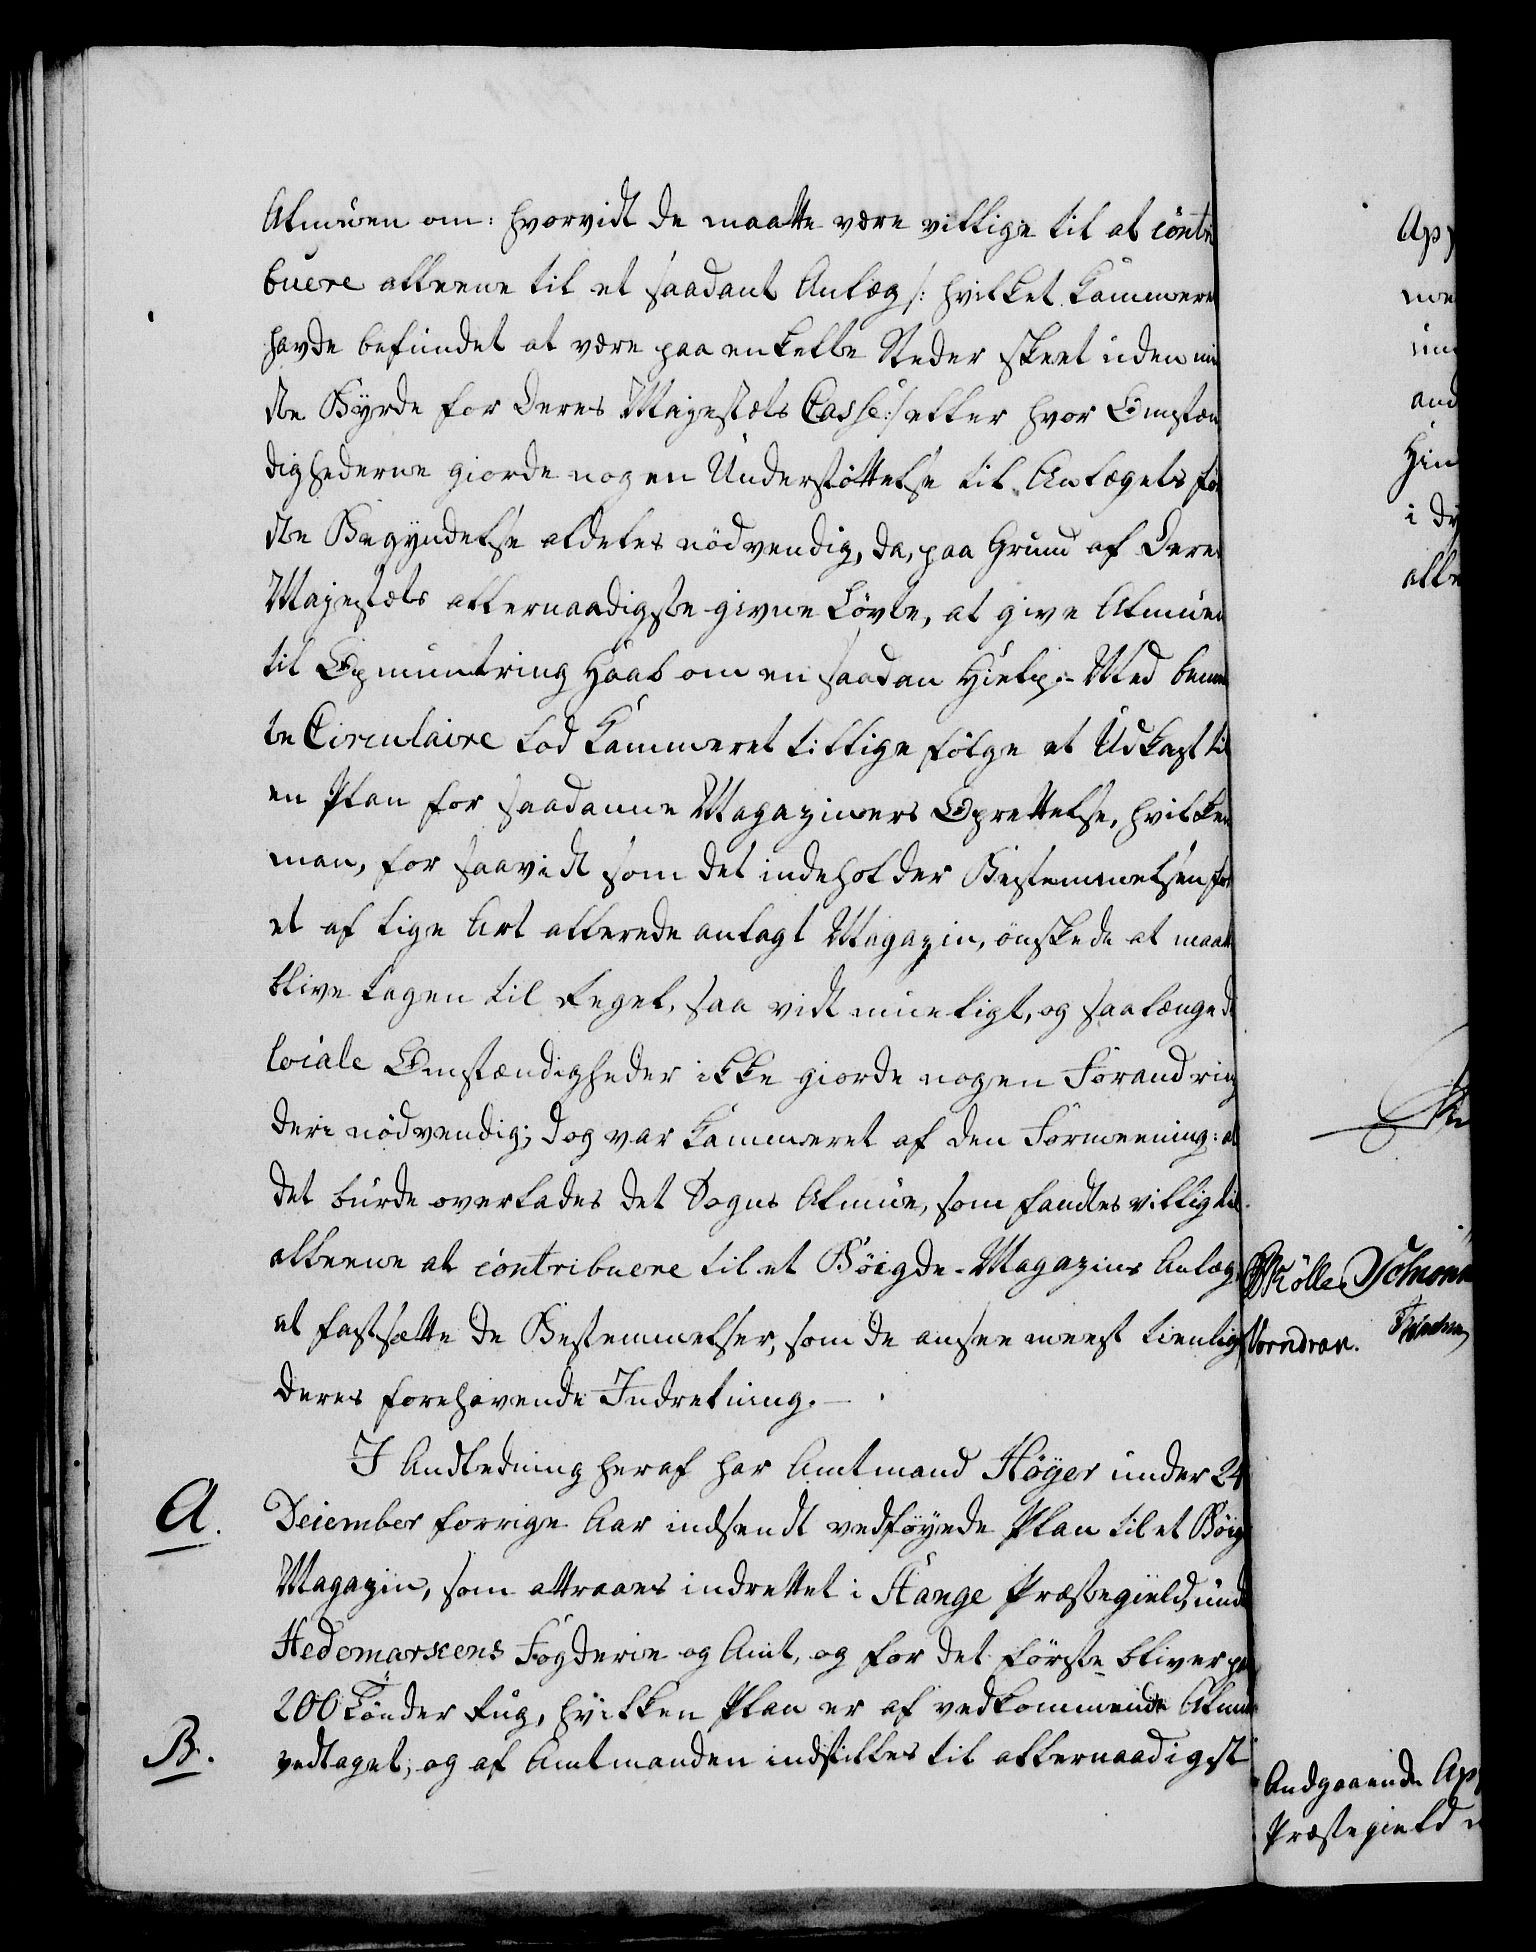 Almuen om: hvorvidt de maatte være villige til at contri
buere alleene til et saadant Anlæg /: hvilket Kammeret
havde befundet at være paa enkelte Steder skeet uden min
ste Byrde for Deres Majestæts Casse :/ eller hvor Omstæn
dighederne giorde nogen Understöttelse til Anlægets för
ste Begyndelse aldeles nödvendig, da, paa Grund af Deres
Majestæts allernaadigste givne Lövte, at give Almuen
til Opmuntring Haab om en saadan Hielp. - Med bemeld
te Circulaire lod Kammeret tillige fölge et Udkast til
en Plan for saadanne Magaziners Oprettelse, hvilken
man, for saavidt som det indeholder Bestemmelsen for
et af lige Art allerede anlagt Magazin, önskede at maatte
blive tagen til Regel, saa vidt mueligt, og saalænge de
locale Omstændigheder ikke giorde nogen Forandring
deri nödvendig; dog var Kammeret af den Formeening: at
det burde overlades det Sogns Almue, som fandtes villig til
alleene at contribuere til et Böigde-Magazins Anlæg,
at fastsætte de Bestemmelser, som de ansee meest tienlig
deres forehavende Indretning. -
I Andledning heraf har Amtmand Höyer under 24
A. December forrige Aar indsendt vedföyede Plan til et Böig
Magazin, som attraaes indrettet i Stange Præstegield, unde
Hedemarkens Fogderie og Amt, og for det förste bliver paa
200 Tönder Rug, hvilken Plan er af vedkommende Almue
B. vedtaget, og af Amtmanden indstilles til allernaadigst
Ap
me
and
Hin
i dy
alle
Möller
Vorndran.
Andgaaende Ap
Præstegield